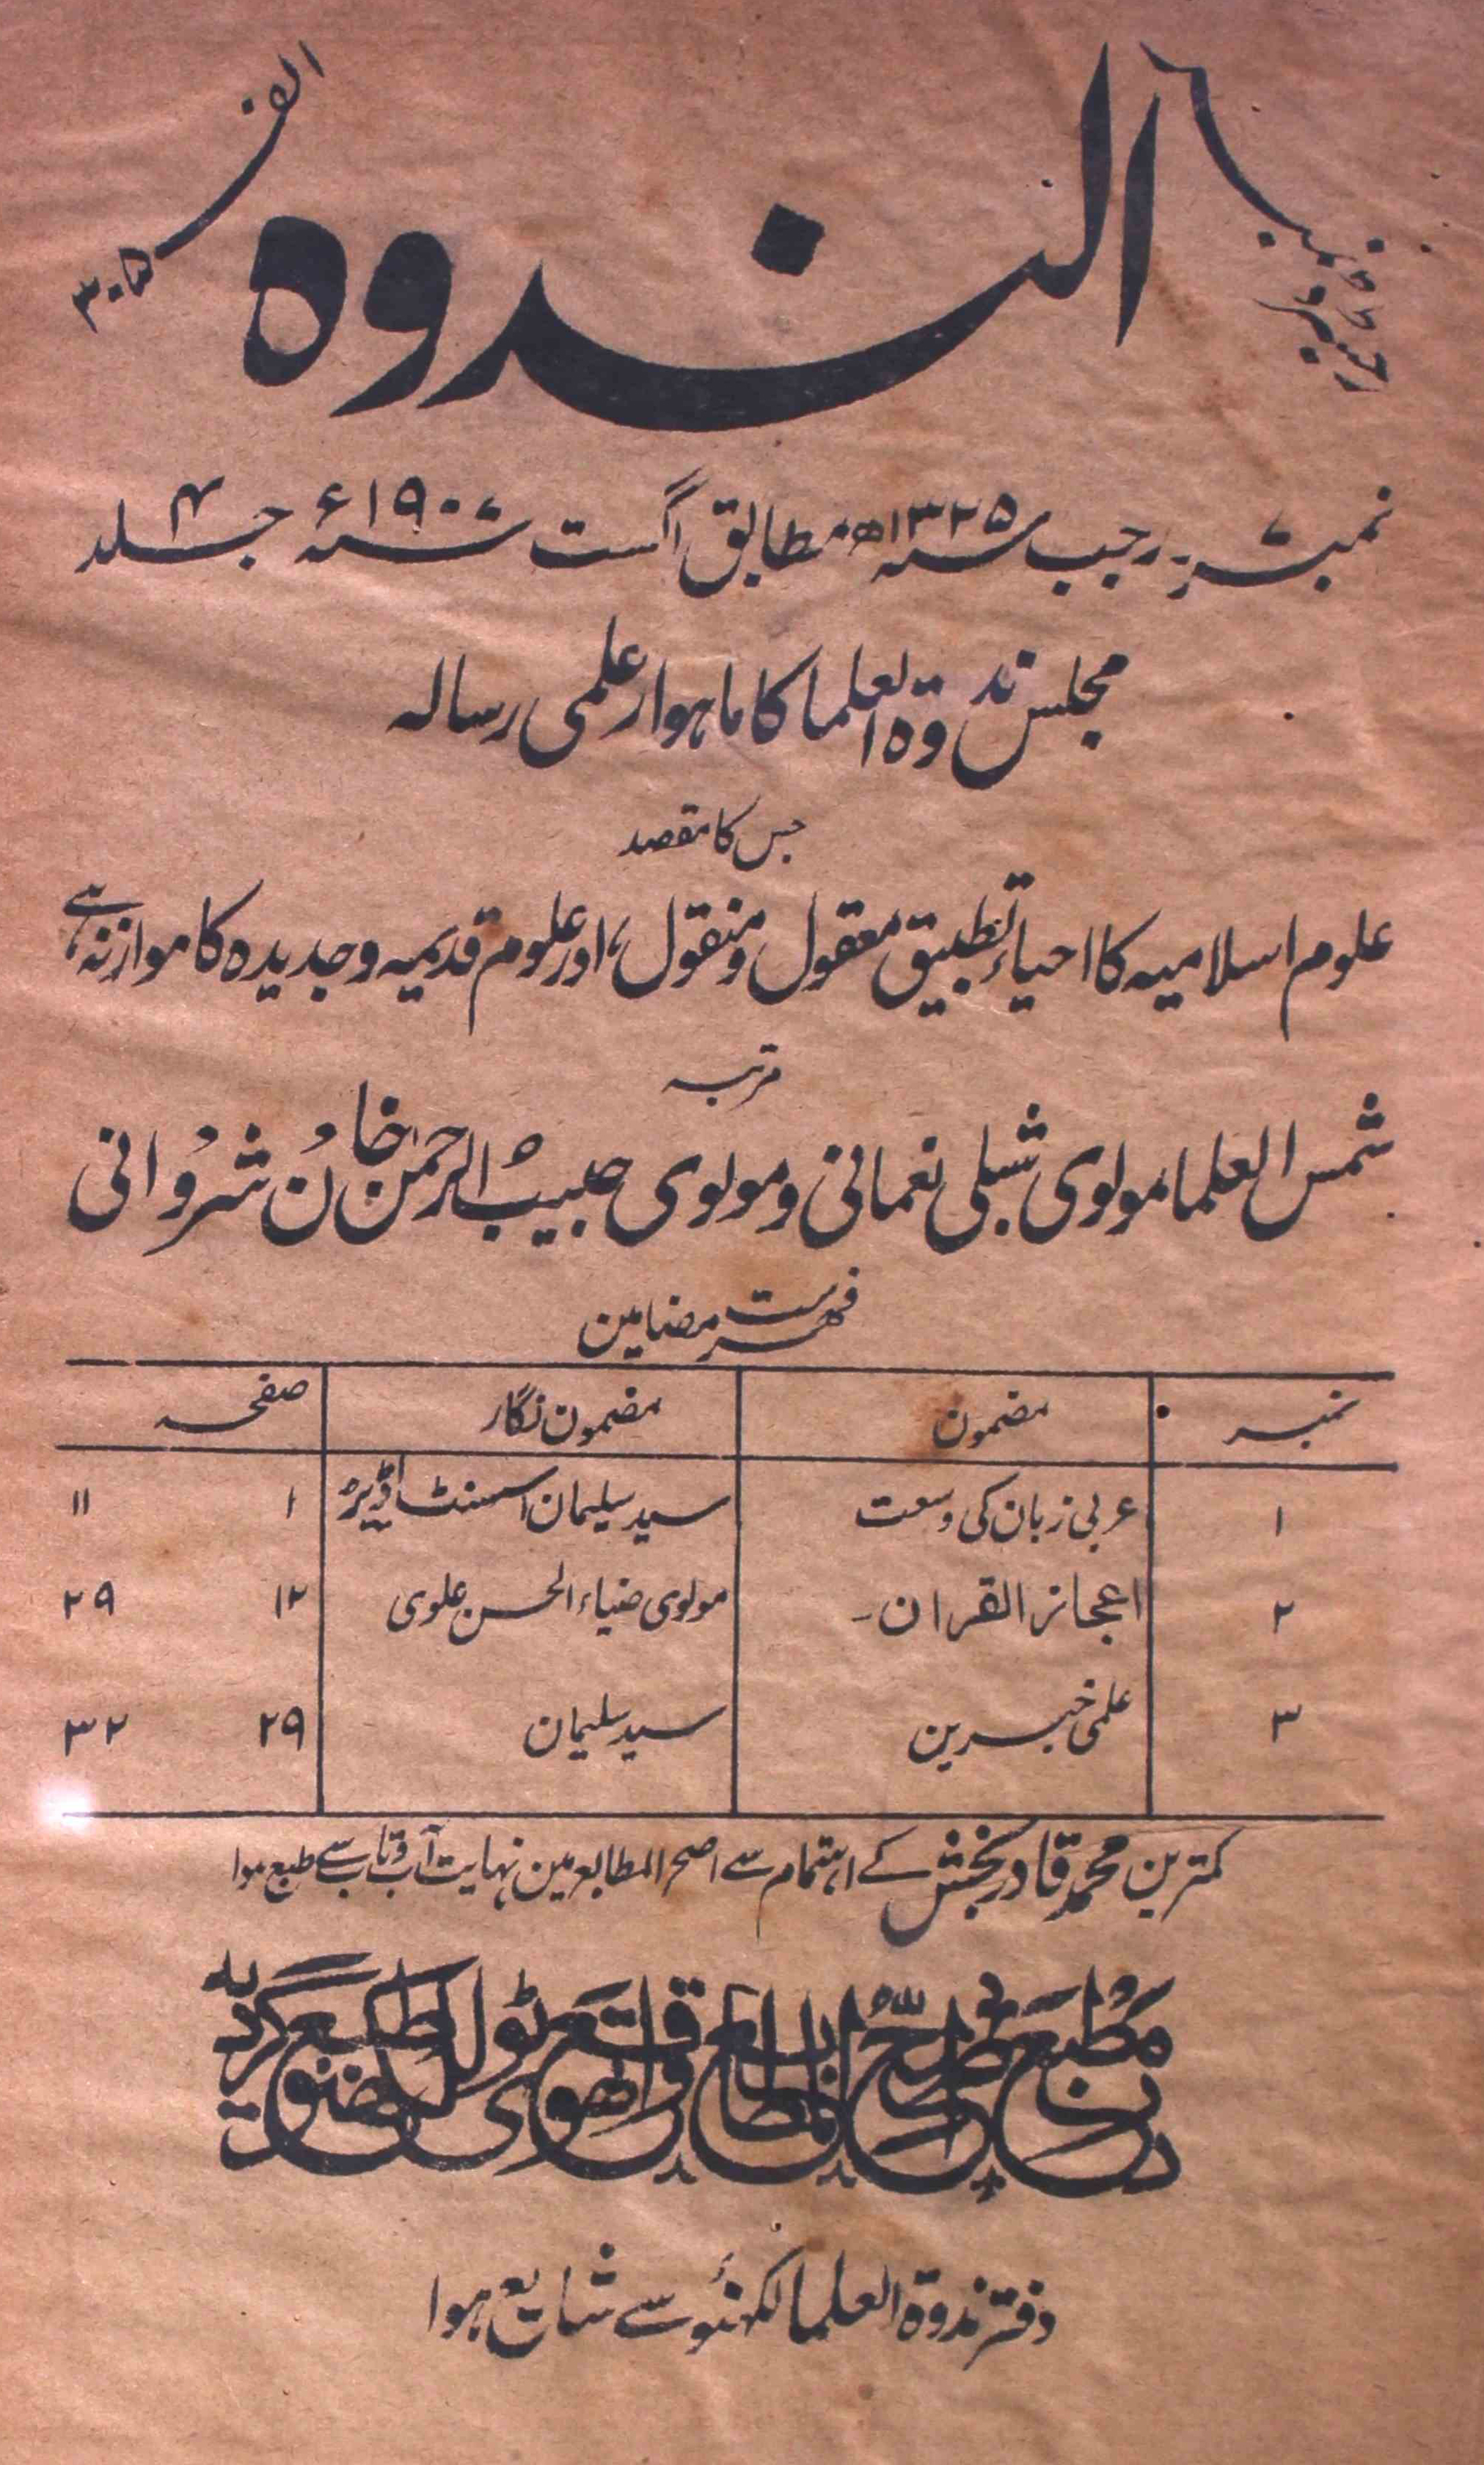 الندوہ
نمبر ۷ رجب سنہ ۱۳۲۵ھ مطابق اگست سنہ ۱۹۰۷ء جلد ۴
مجلس ندوۃ العلما کا ماہوار علمی رسالہ
جس کا مقصد
علوم اسلامیہ کا احیاء تطبیق معقول و منقول، اور علوم قدیمہ و جدیدہ کا موازنہ ہے،
مرتبہ
شمس العلما مولوی شبلی نعمانی و مولوی حبیب الرحمٰن خان شروانی
فہرست مضامین
نمبر مضمون مضمون نگار صفحہ
۱ عربی زبان کی وسعت سید سلیمان اسسٹنٹ اڈیٹر ۱ ۱۱
۲ اعجاز القران - مولوی ضیاء الحسن علوی ۱۲ ۲۹
۳ علمی خبرین سید سلیمان ۲۹ ۳۲
کمترین محمد قادر بخش کے اہتمام سے اصح المطابع مین نہایت آب و تاب سے طبع ہوا
دفتر ندوۃ العلما لکھنؤ سے شایع ہوا